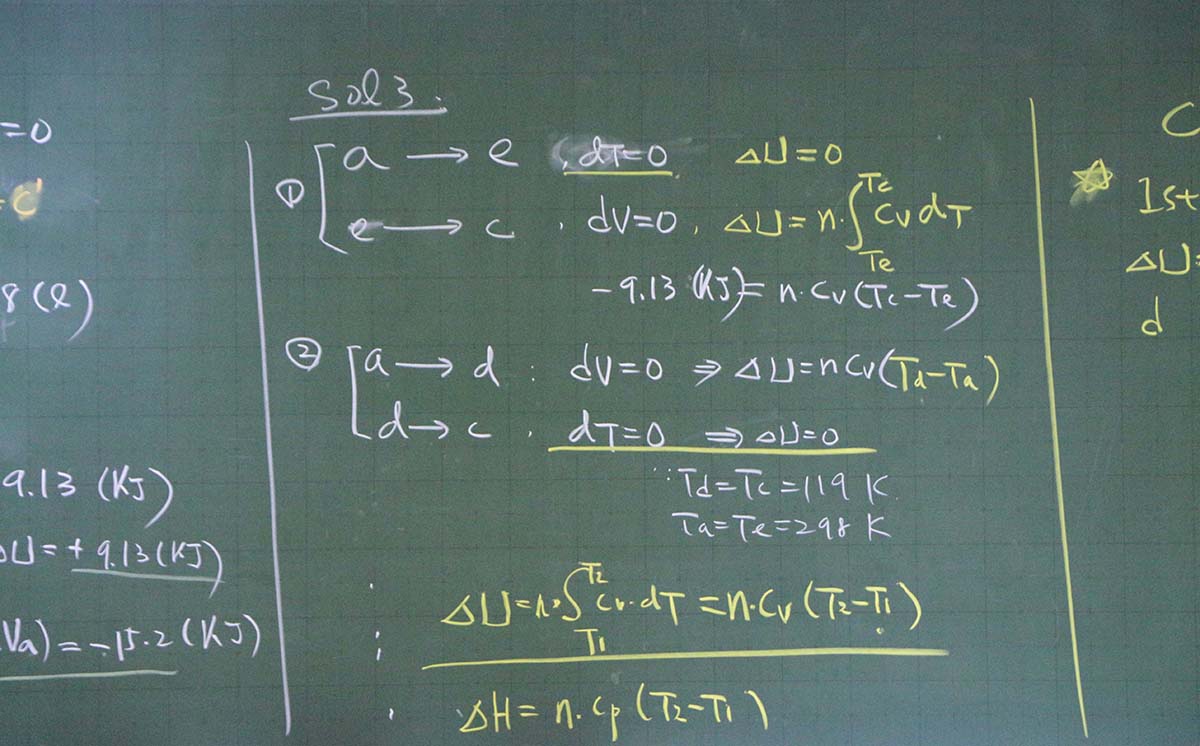 =0
8 (l)
9.13 (KJ)
ΔU=+9.13(KJ)
Va)=-15.2(KJ)
Sol 3.
① a → e , dT=0 ΔU=0
e → c , dV=0, ΔU=n·∫_{Te}^{Tc} Cv dT
-9.13 (KJ)= n·Cv(Tc-Te)
② a → d : dV=0 ⇒ ΔU=nCv(Td-Ta)
d → c , dT=0 ⇒ ΔU=0
∵ Td=Tc=119 K.
Ta=Te=298 K
ΔU=n·∫_{T1}^{T2} Cv·dT=n·Cv(T2-T1)
ΔH=n·Cp(T2-T1)
☆ 1st
ΔU=
d